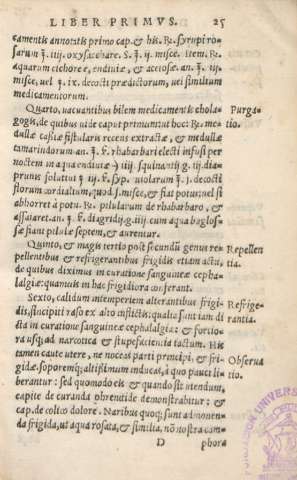 LIBER PRIMVS. 25
camentis annotatis primo cap. & his. ℞. syrupi ro-
sarum ℥. iij. oxysacchare. S. ℥. ij. misce. item. ℞.
aquarum cichoreæ, endiuiæ, & acetosæ. an. ℥. iij.
misce, uel ℥. ix. decocti prædictorum, uel similium
medicamentorum.
Quarto, uacuantibus bilem medicamentis chola- Purga-
gogis, de quibus uide caput primum ut hoc: ℞. me- tio.
dullæ cassiæ fistularis recens extractæ, & medullæ
tamarindorum an. ℥. rhabarbari electi infusi per
noctem in aqua endiuiæ iiij. squinanti g. iij. dia-
prunis solutiui ij. syp. uiolarum ℥. j. decocti
florum cordialium, quod s. misce, & fiat potus: uel si
abhorret à potu. ℞. pilularum de rhabarbaro, &
assaiaret. an. diagridij. g. iij. cum aqua buglos-
sæ fiant pilulæ septem, & aurentur.
Quinto, & magis tertio post secundum genus re- Repellen
pellentibus & refrigerantibus frigidis etiam actu, tia.
de quibus diximus in curatione sanguineæ cepha-
lalgiæ: quamuis in hac frigidiora conferant.
Sexto, calidum intemperiem alterantibus frigi- Refrige-
dis, sincipiti raso ex alto inflictis: qualia sunt iam di rantia.
cta in curatione sanguineæ cephalalgiæ: & fortio-
ra usque ad narcotica & stupefacientia tactum. His
tamen caute utere, ne noceas parti principi, & fri- Obserua
gidæ, soporemque altissimum inducas, à quo pauci li tio.
berantur: sed quomodo eis & quando sit utendum,
capite de curanda phrenitide demonstrabitur: &
cap. de colico dolore. Naribus quoque sunt admouen-
da frigida, ut aqua rosata, & similia, nō nostra cam-
D phora